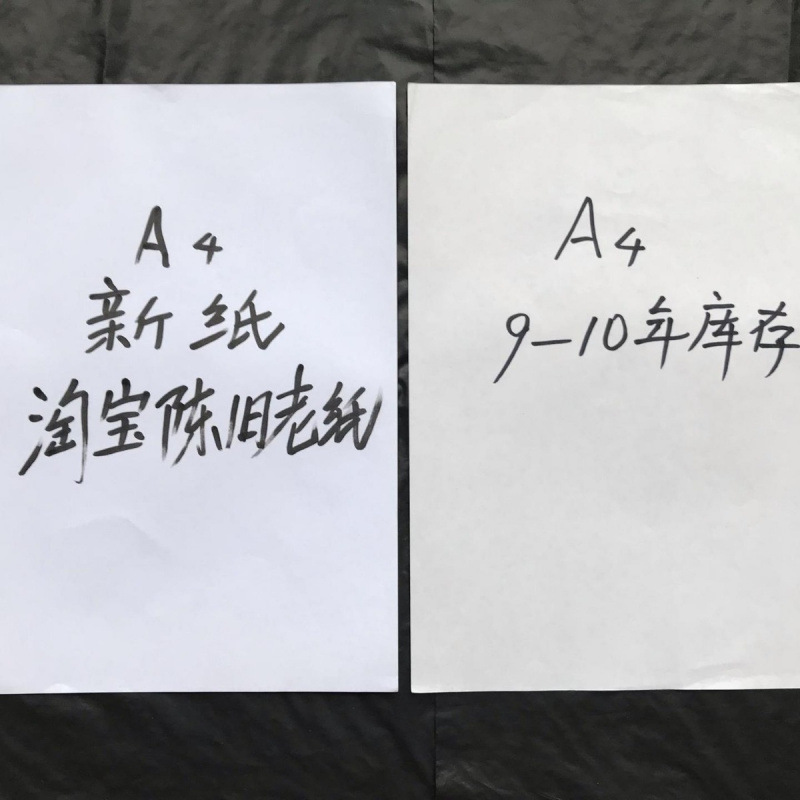 A4
新纸
淘宝陈旧老纸
A4
9-10年库存